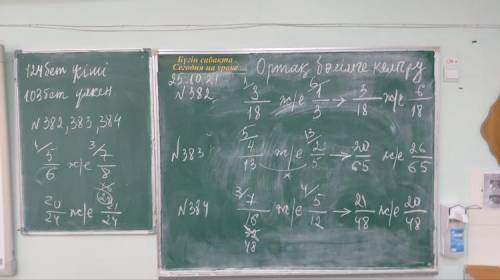 124бет кіші
103бет үлкен
N 382, 383, 384
4/ 5/6 ж/е 3/ 7/8
20/24 ж/е 21/24
Бүгін сабақта
Сегодня на уроке
25.10.21
Ортақ бөлімге келтіру
N382 1/ 3/18 ж/е 6/ 1/3 → 3/18 ж/е 6/18
N383 5/ 4/13 ж/е 13/ 2/5 → 20/65 ж/е 26/65
N384 3/ 7/16 ж/е 4/ 5/12 → 21/48 ж/е 20/48
48